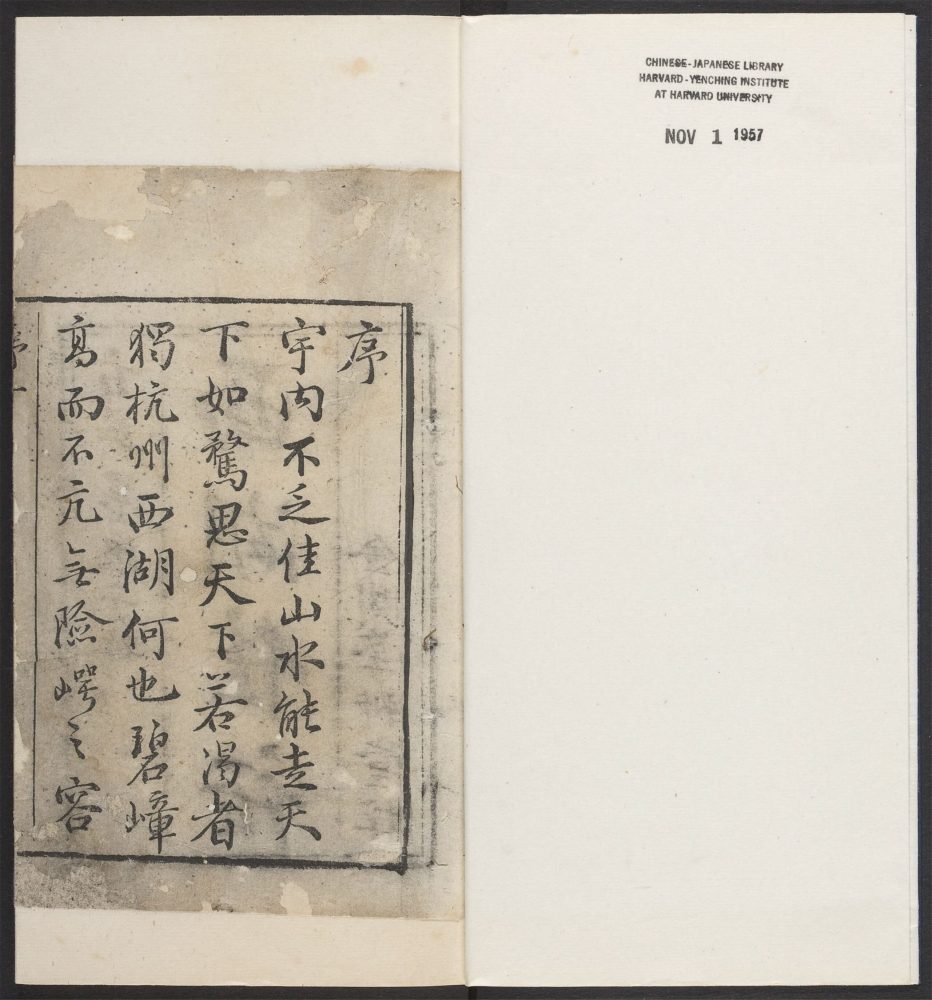 CHINESE-JAPANESE LIBRARY
HARVARD-YENCHING INSTITUTE
AT HARVARD UNIVERSITY
NOV 1 1957
序
宇内不乏佳山水能走天
下如鶩思天下若渴者
獨杭州西湖何也碧嶂
髙而不亢無險崿之容
序一